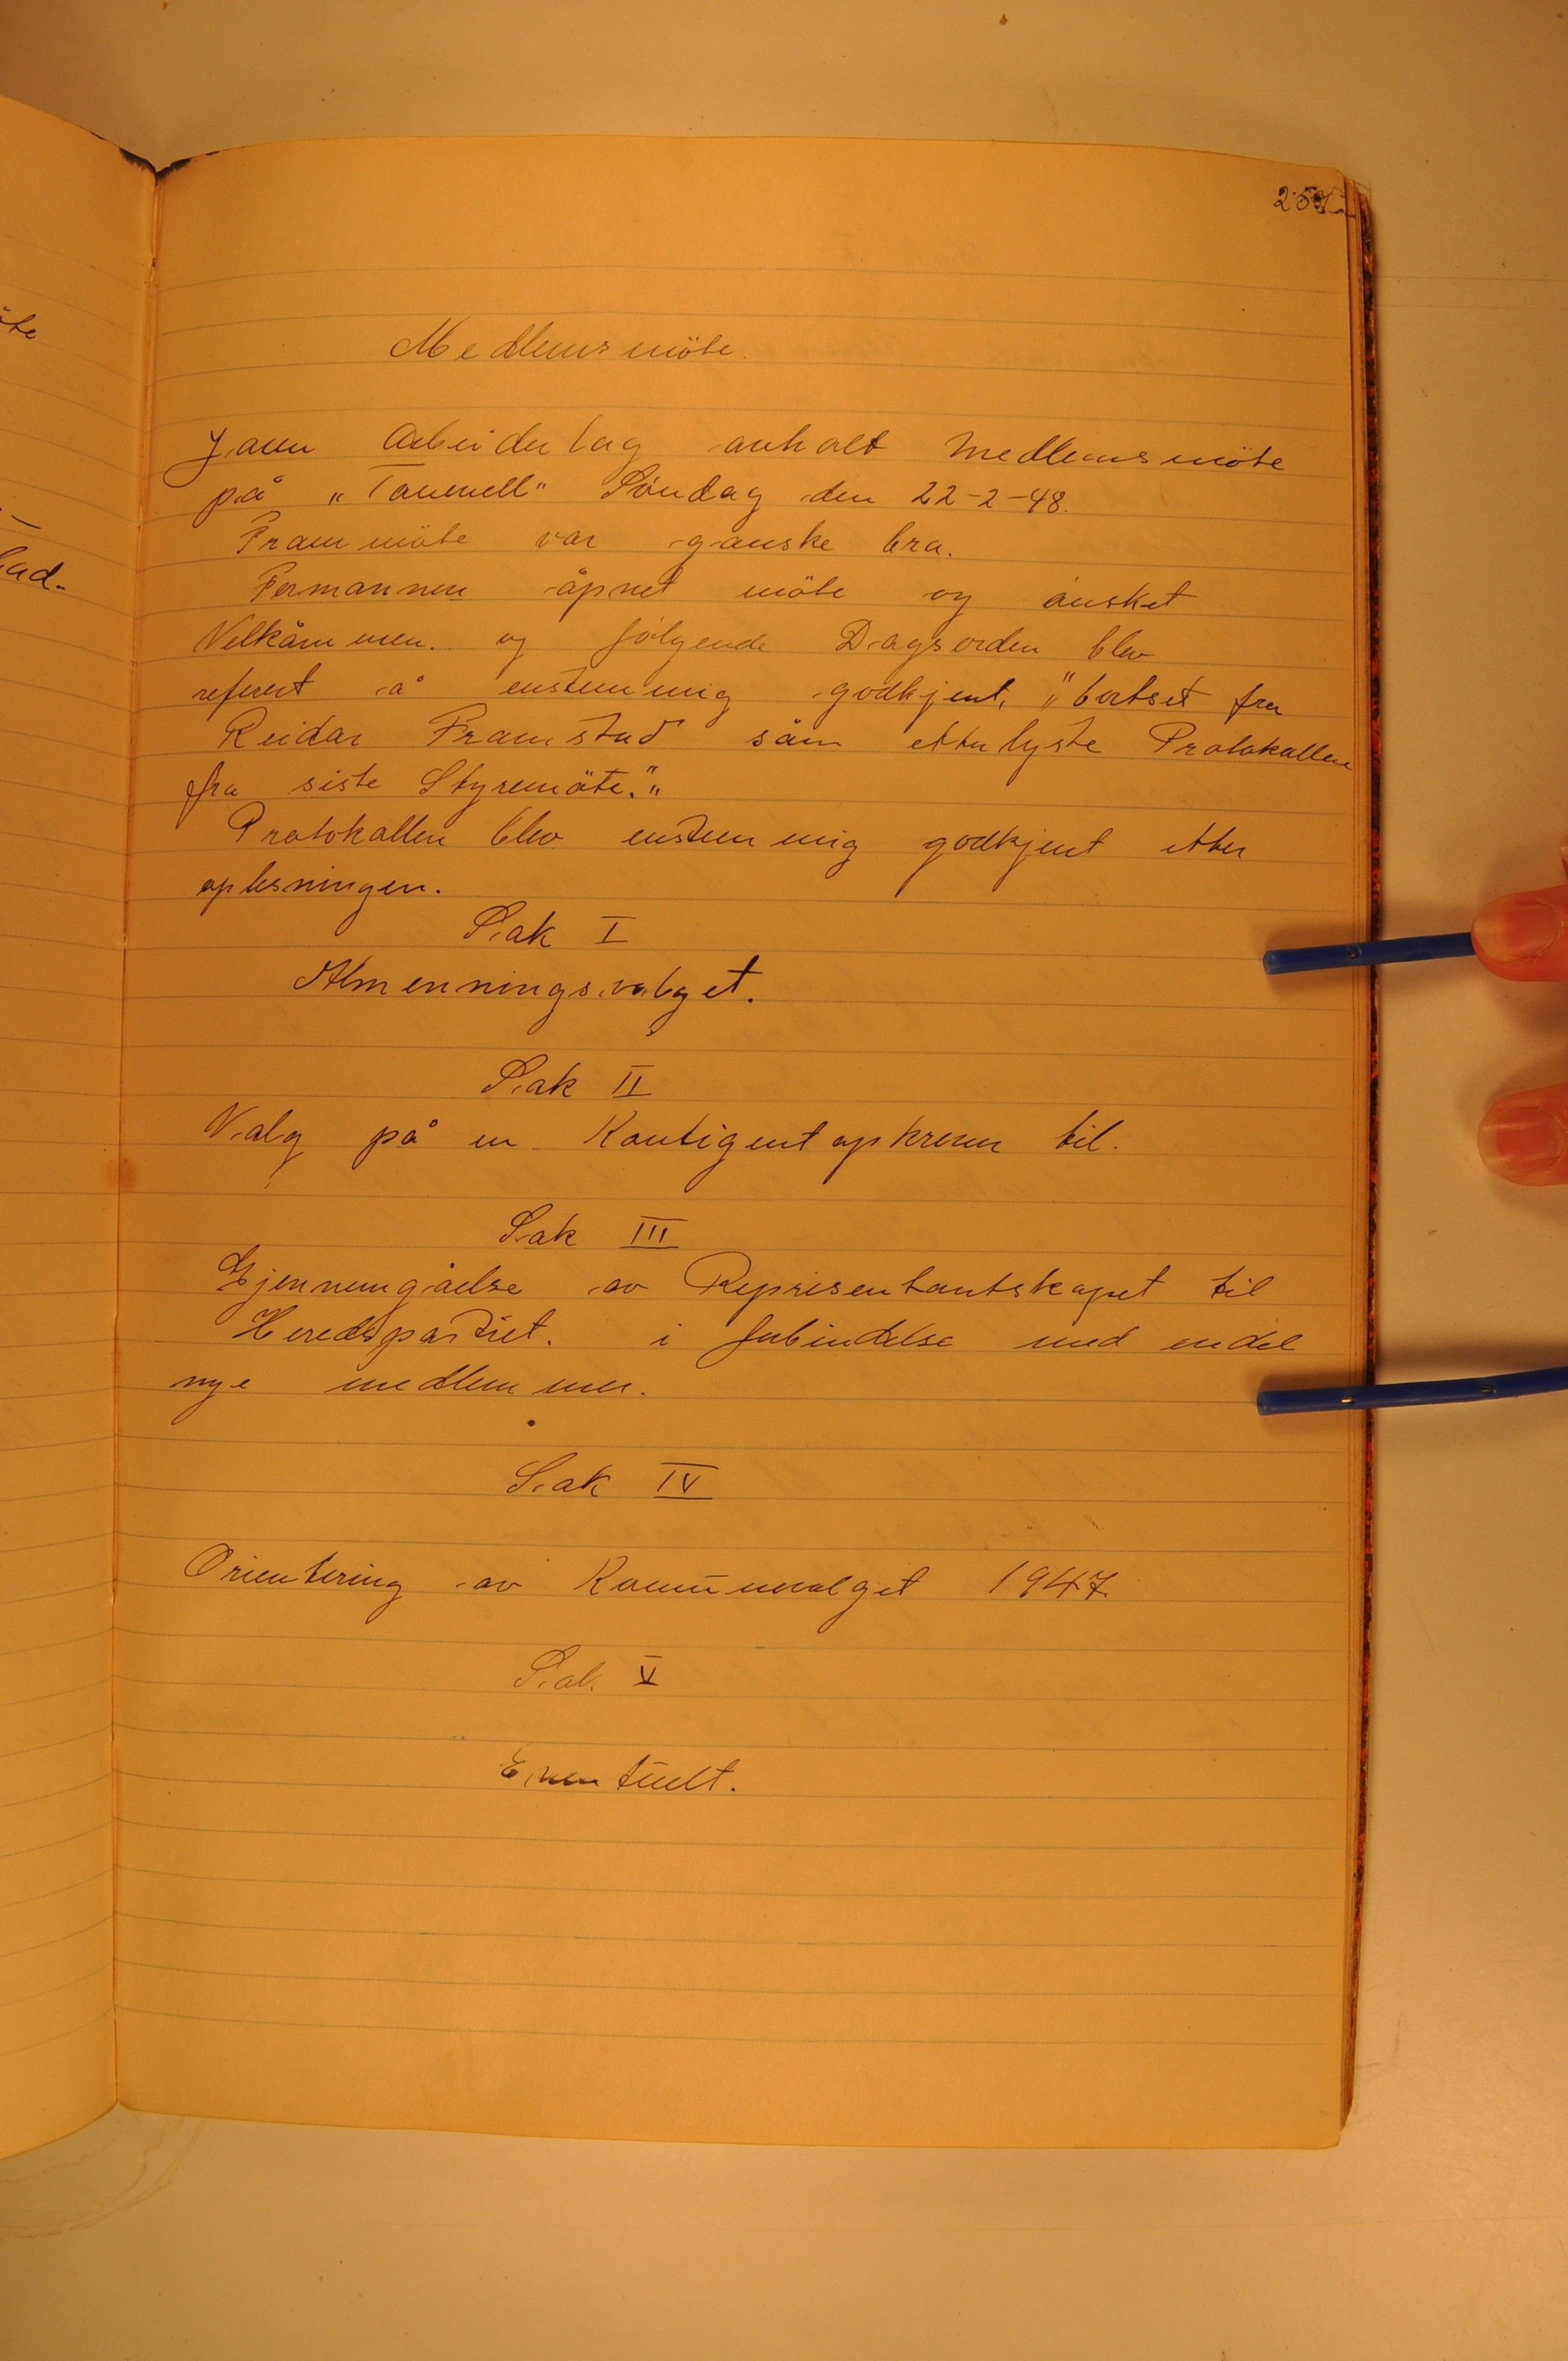 257
Medlemsmöte.
Jaren Arbeiderlag anholt Medlemsmöte
på „Tannvell" Söndag den 22-2-48.
Frammöte var ganske bra.
Formannen åpnet möte og önsket
Velkåmmen. og fölgende Dagsorden blev
referert å enstemmig godkjent, "bortset fra
Reidar Framstad såm etterlyste Protokallen
fra siste Styremöte."
Protokallen blev enstemmig godkjent etter
oplesningen.
Sak I
Almenningsvalget.
Sak II
Valg på en Kontigentopkrever til.
Sak III
Gjennemgåelse av Represententskapet til
Heredspartiet. i forbindelse med endel
nye medlemmer.
Sak IV
Orientering av Komunevalget 1947.
Sak V
Eventuelt.